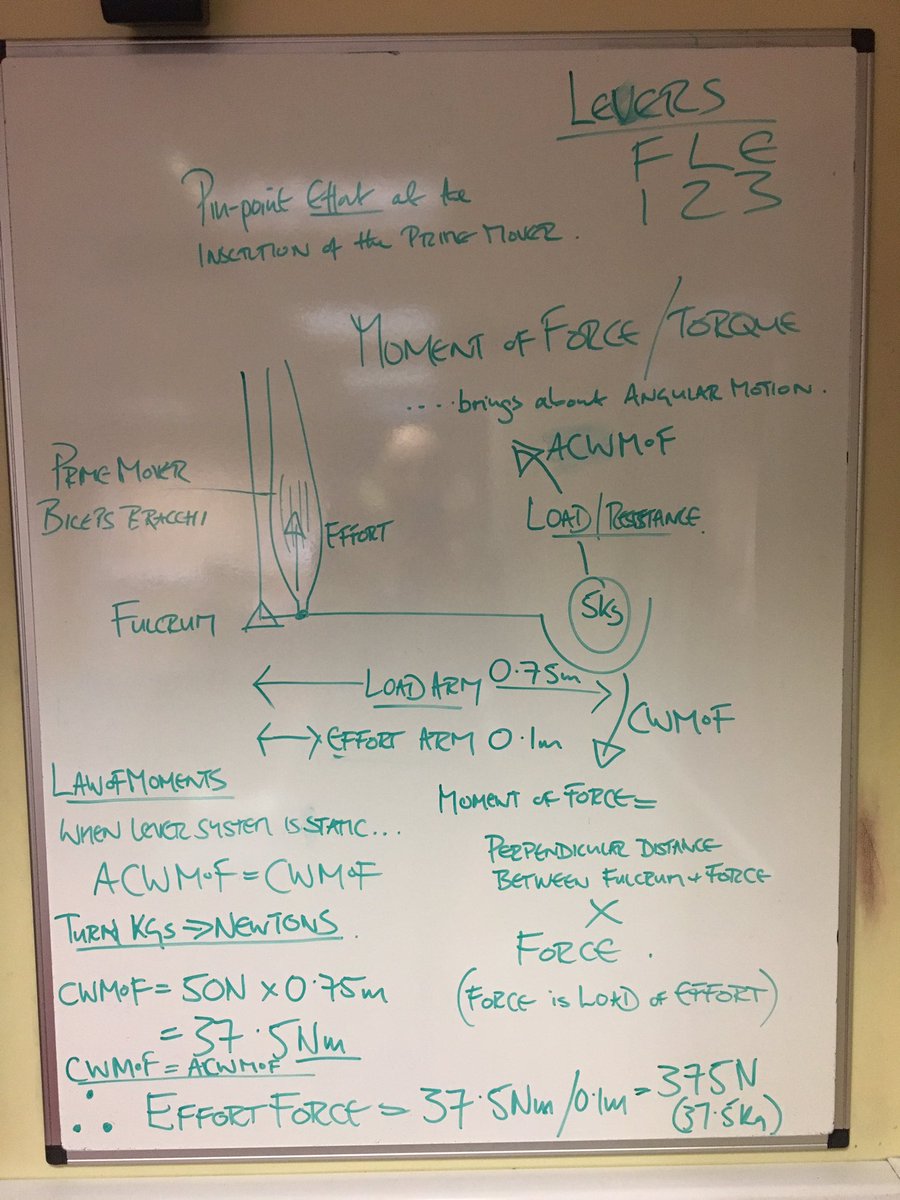 LEVERS
F L E
1 2 3
Pin-point Effort at the
INSERTION of the PRIME MOVER.
MOMENT OF FORCE/TORQUE
....brings about ANGULAR MOTION.
ACWMoF
LOAD/RESISTANCE
PRIME MOVER
BICEPS BRACCHI
EFFORT
5kg
FULCRUM
LOAD ARM 0.75m
CWMoF
EFFORT ARM 0.1m
LAW OF MOMENTS
WHEN LEVER SYSTEM IS STATIC...
ACWMoF = CWMoF
MOMENT OF FORCE =
PERPENDICULAR DISTANCE
BETWEEN FULCRUM + FORCE
X
FORCE.
(FORCE is LOAD of EFFORT)
TURN KGS ⇒ NEWTONS.
CWMoF = 50N x 0.75m
= 37.5Nm
CWMoF = ACWMoF
∴ EFFORT FORCE = 37.5Nm/0.1m = 375N
(37.5kg)